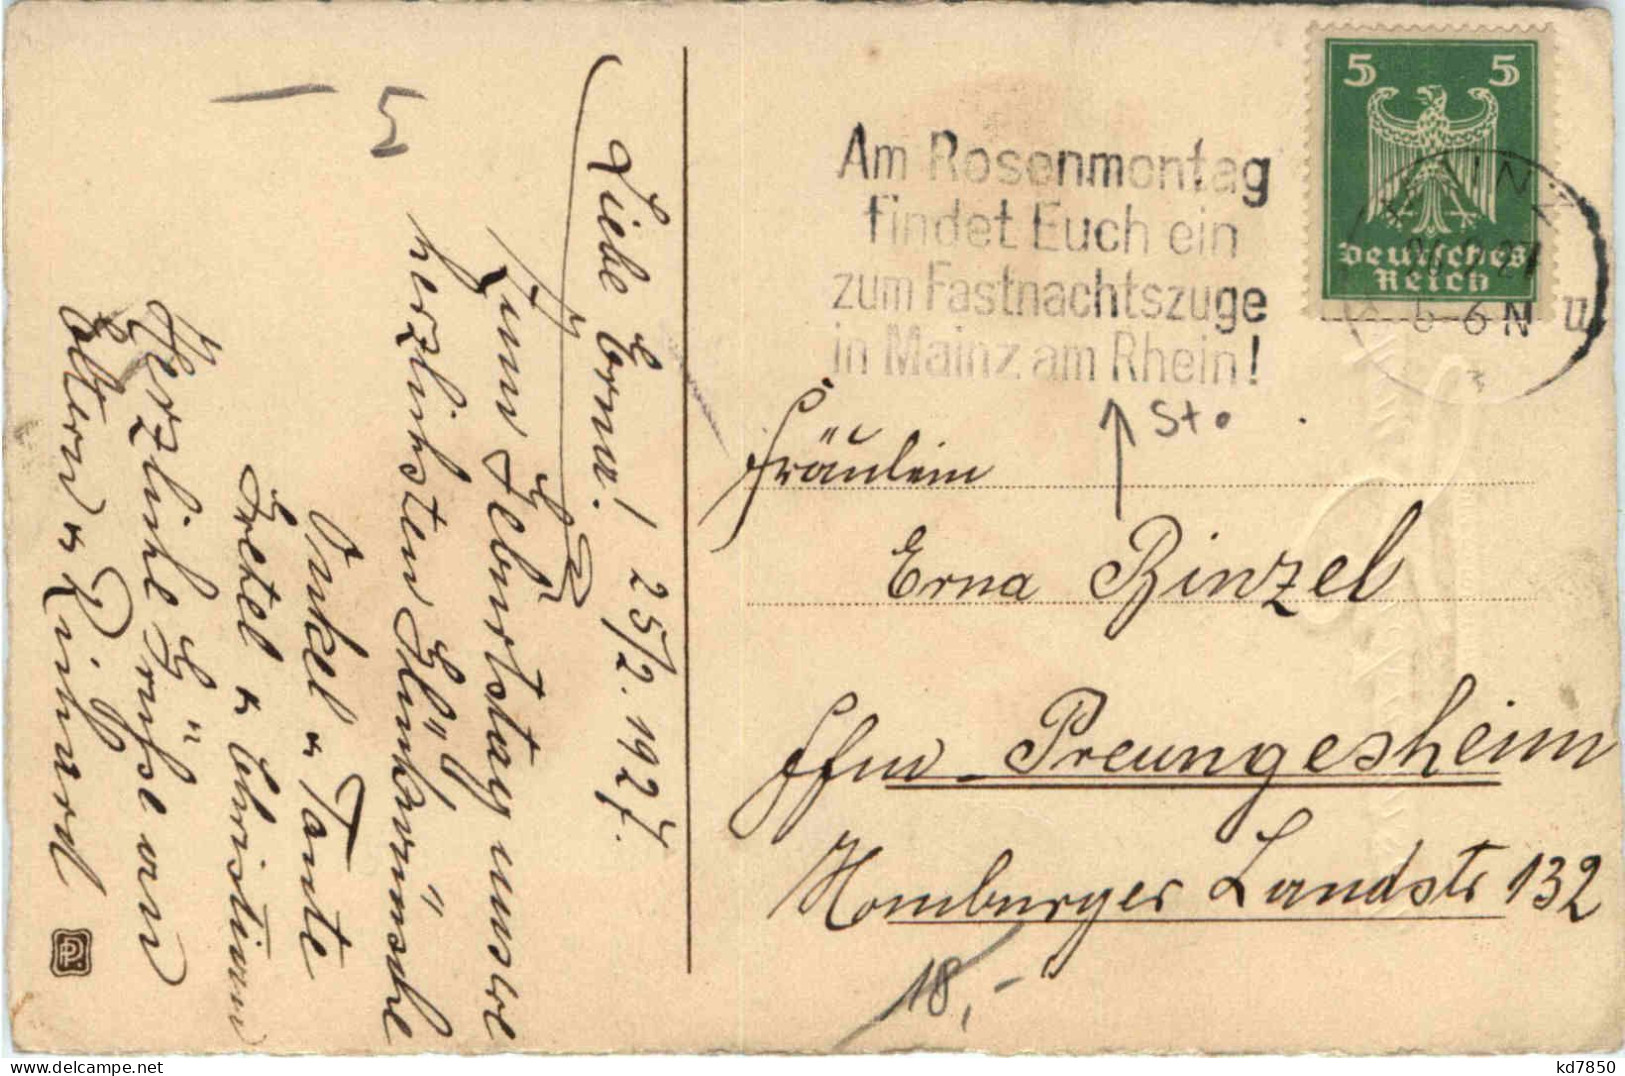 5 5
Deutsches
Reich
MAINZ
6-6 N
Am Rosenmontag
findet Euch ein
zum Fastnachtszuge
in Mainz am Rhein!
Sto
Fräulein
Erna Binzel
Ffm - Preungesheim
Homburger Landstr 132
18,-
- 5
25/2. 1927.
Liebe Erna!
Zum Geburtstag unsre
herzlichsten Glückwünsche
Onkel u. Tante
Gretel u. Christian
Herzliche Grüße von
Eltern u. Richard
PP.
kd7850